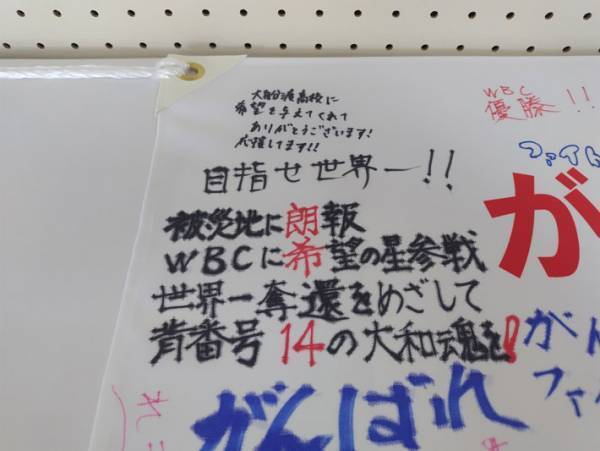 大船渡高校に
希望を与えてくれて
ありがとうございます!
応援してます!!
目指せ世界一!!
WBC
優勝!!
ファイト
が
被災地に朗報
WBCに希望の星参戦
世界一奪還をめざして
背番号14の大和魂を!
がん
ファ
がんばれ
れ